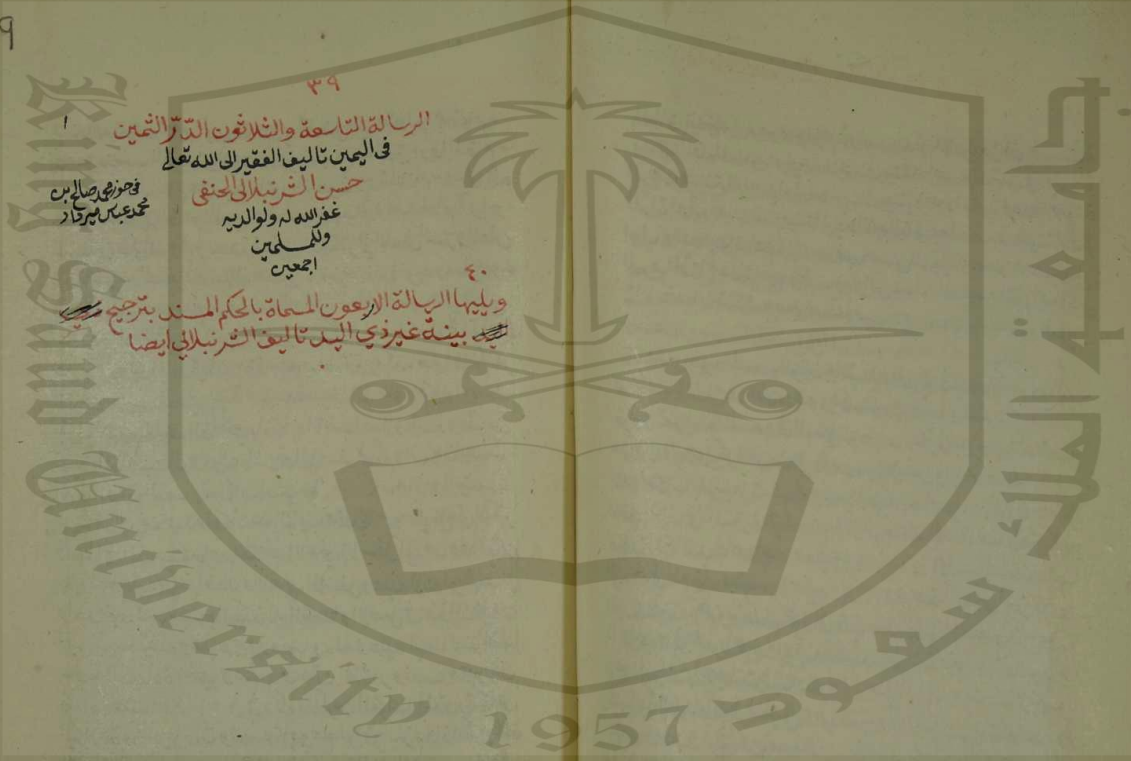 ٣٩
الرسالة التاسعة والثلاثون الدّرّ الثمين
في اليمين تاليف الفقير الى الله تعالى
حسن الشرنبلالى الحنفى
غفر الله له ولوالديه
وللمسلمين
اجمعين
في حوز محمد صالح بن
محمد عباس ميرداد
١
٤٠
ويليها الرسالة الاربعون المسماة بالحكم المسند بترجيح
بينة غير ذي اليد تاليف الشرنبلالي ايضا
جامعة الملك سعود
King Saud University
1957